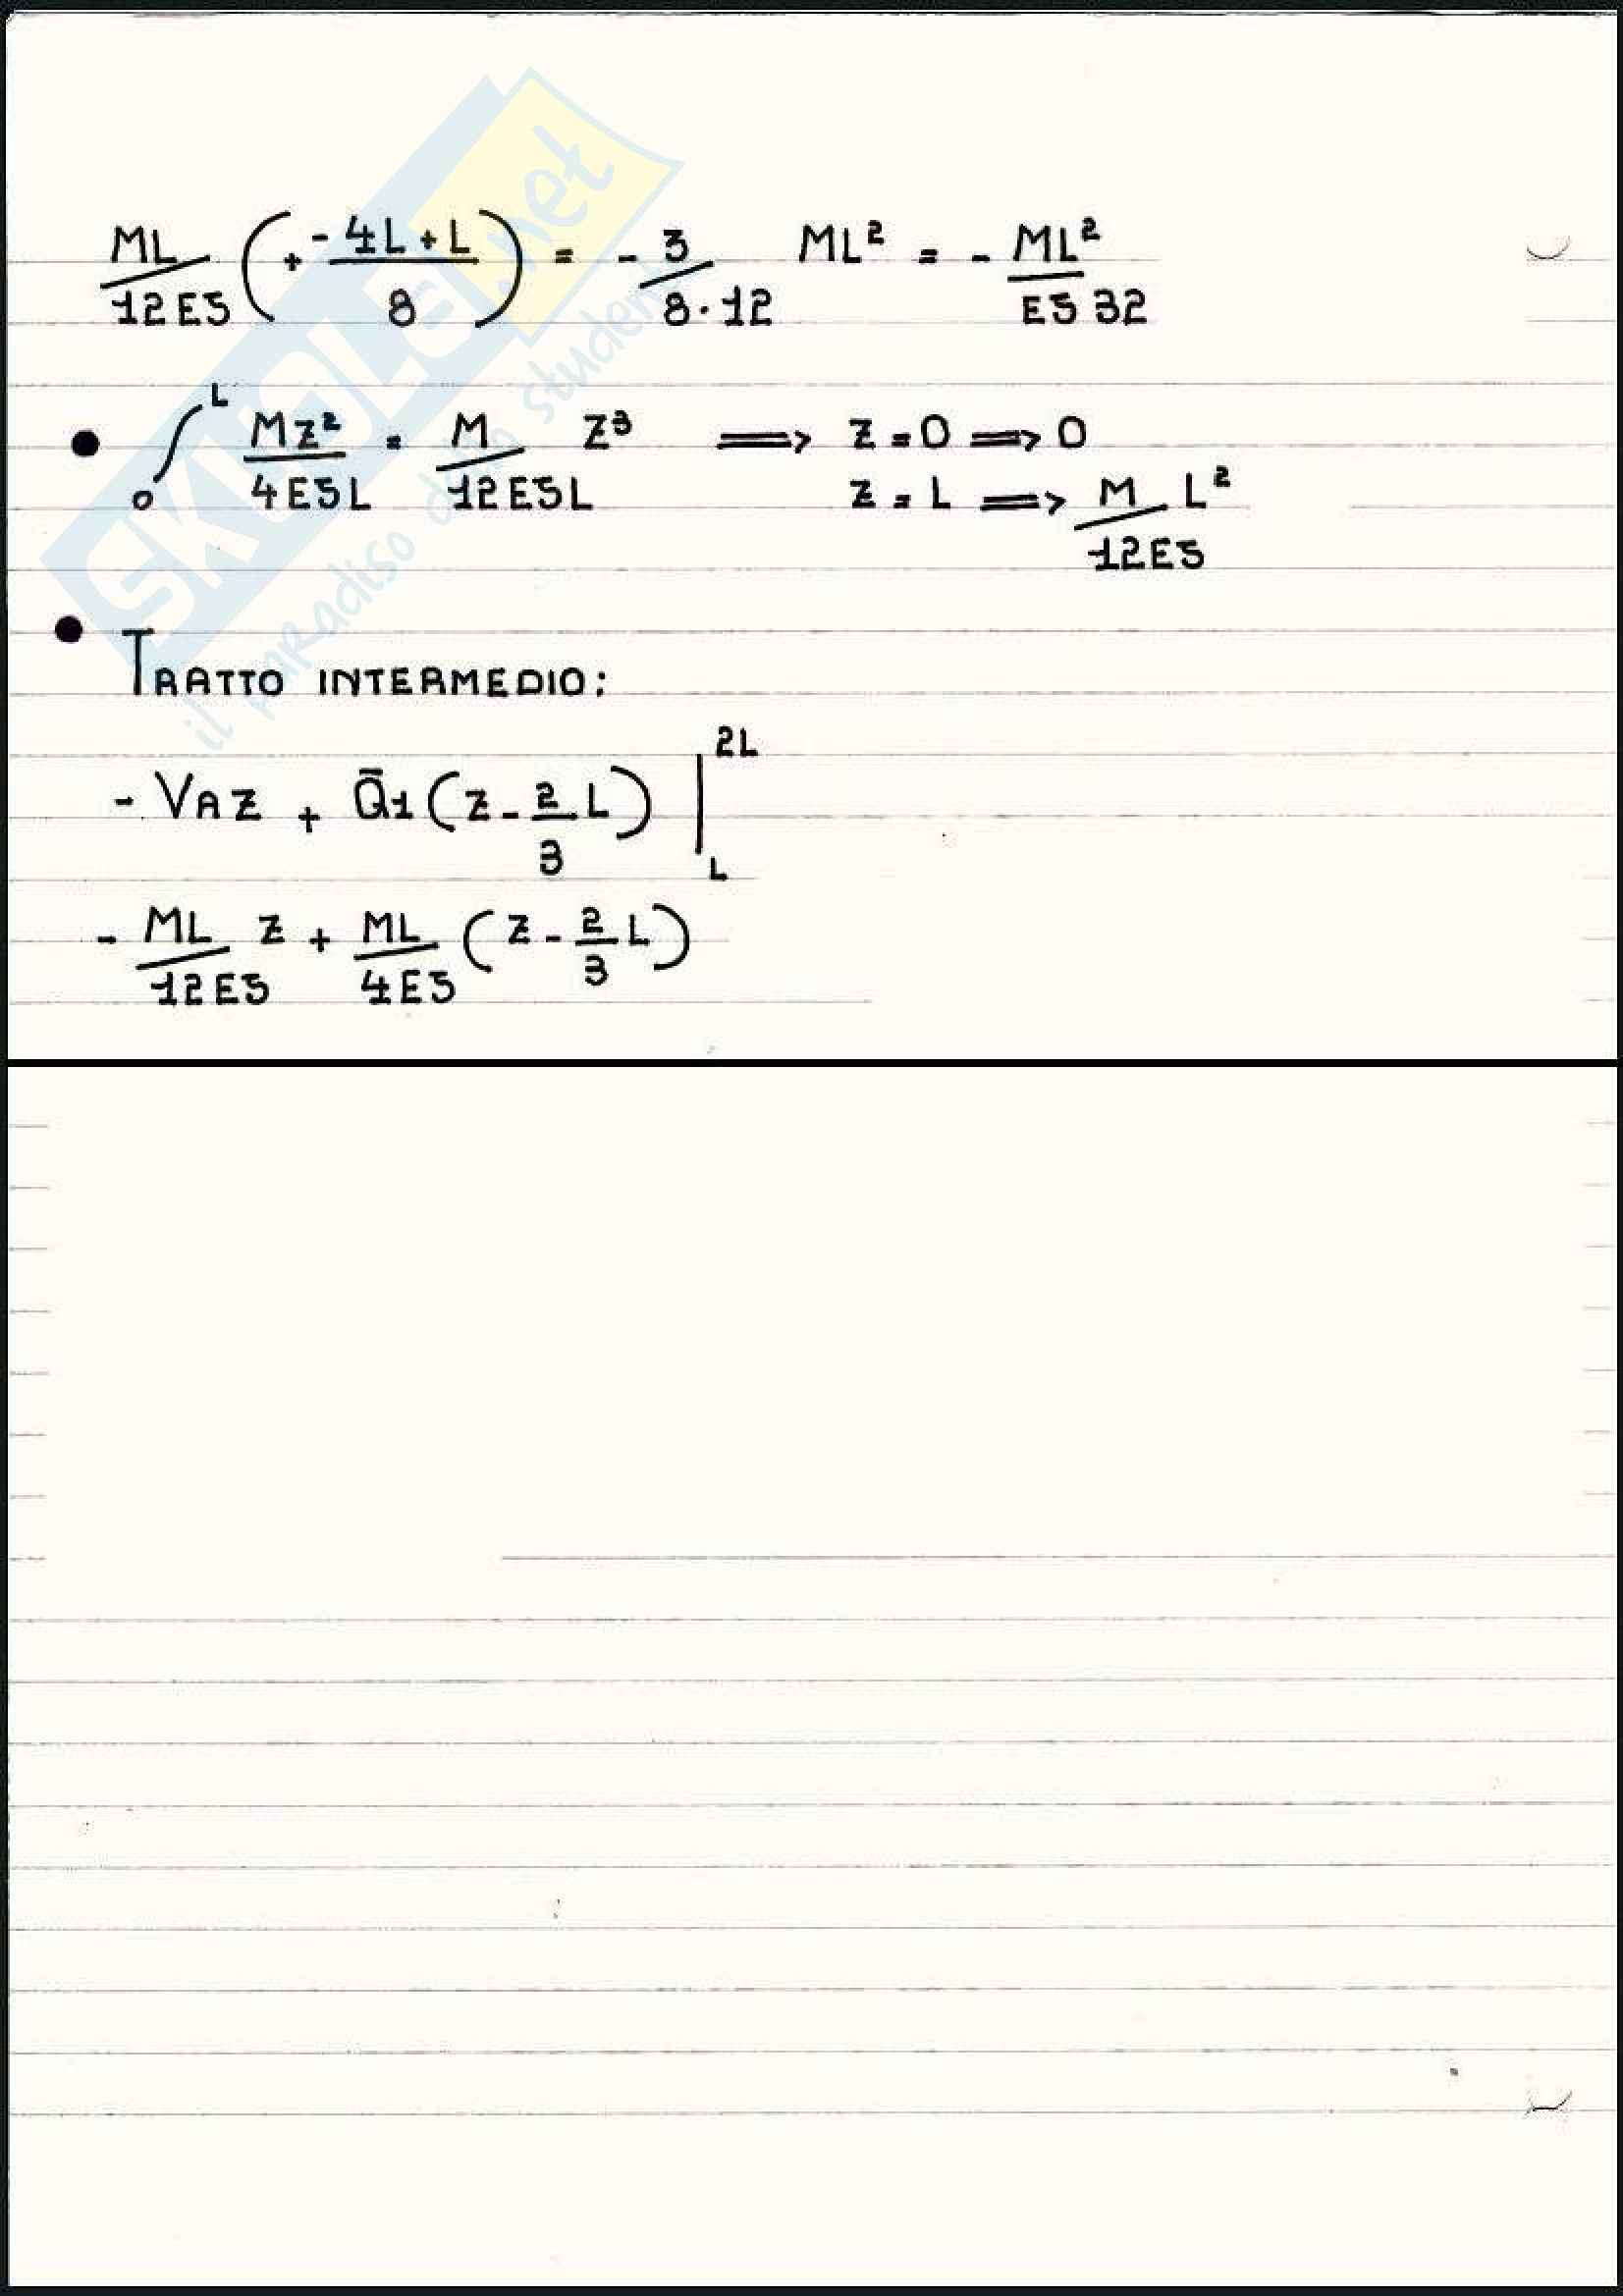 ML/12E5 (+ (-4L+L)/8) = - 3/(8·12) ML² = - ML²/(E5 32)
• ∫₀ᴸ Mz²/4E5L = M/12E5L z³ ⟹ z=0 ⟹ 0
z=L ⟹ M/12E5 L²
• TRATTO INTERMEDIO:
- VAZ + Q̄1(z - 2/3 L) |_L^2L
- ML/12E5 z + ML/4E5 (z - 2/3 L)
SKUOLA.net
il paradiso dello studente